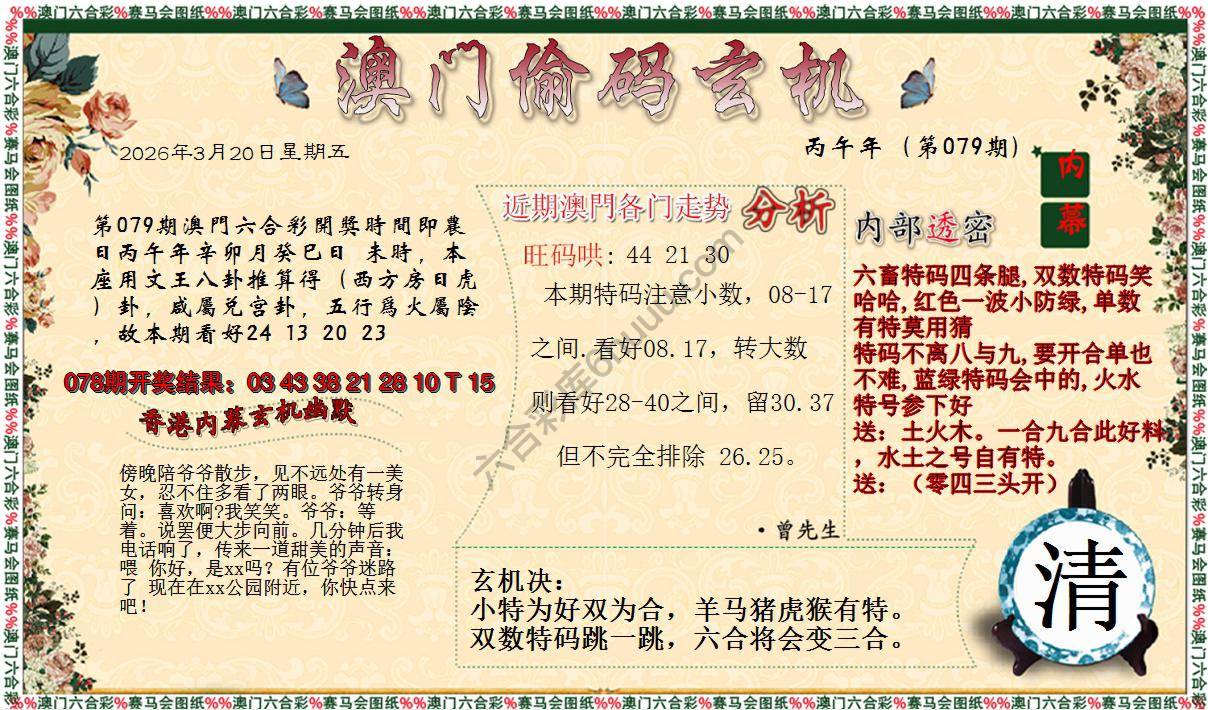 %%澳门六合彩%赛马会图纸%%澳门六合彩%赛马会图纸%%澳门六合彩%赛马会图纸%%澳门六合彩%赛马会图纸%%澳门六合彩%赛马会图纸%%澳门六合彩%赛马会图纸%%
澳门偷码玄机
2026年3月20日星期五
丙午年（第079期）
内
幕
第079期澳門六合彩開獎時間即農
日丙午年辛卯月癸巳日 未時，本
座用文王八卦推算得（西方房日虎
）卦，咸屬兑宫卦，五行爲火屬陰
，故本期看好24 13 20 23
078期开奖结果：03 43 38 21 28 10 T 15
香港内幕玄机幽默
傍晚陪爷爷散步，见不远处有一美
女，忍不住多看了两眼。爷爷转身
问：喜欢啊?我笑笑。爷爷：等
着。说罢便大步向前。几分钟后我
电话响了，传来一道甜美的声音：
喂 你好，是xx吗？有位爷爷迷路
了 现在在xx公园附近，你快点来
吧！
近期澳門各门走势 分析
旺码哄：44 21 30
本期特码注意小数，08-17
之间.看好08.17，转大数
则看好28-40之间，留30.37
但不完全排除 26.25。
·曾先生
玄机决：
小特为好双为合，羊马猪虎猴有特。
双数特码跳一跳，六合将会变三合。
内部透密
六畜特码四条腿,双数特码笑
哈哈,红色一波小防绿,单数
有特莫用猜
特码不离八与九,要开合单也
不难,蓝绿特码会中的,火水
特号参下好
送：土火木。一合九合此好料
，水土之号自有特。
送：（零四三头开）
清
%%澳门六合彩%赛马会图纸%%澳门六合彩%赛马会图纸%%澳门六合彩%赛马会图纸%%澳门六合彩%赛马会图纸%%澳门六合彩%赛马会图纸%%澳门六合彩%赛马会图纸%%